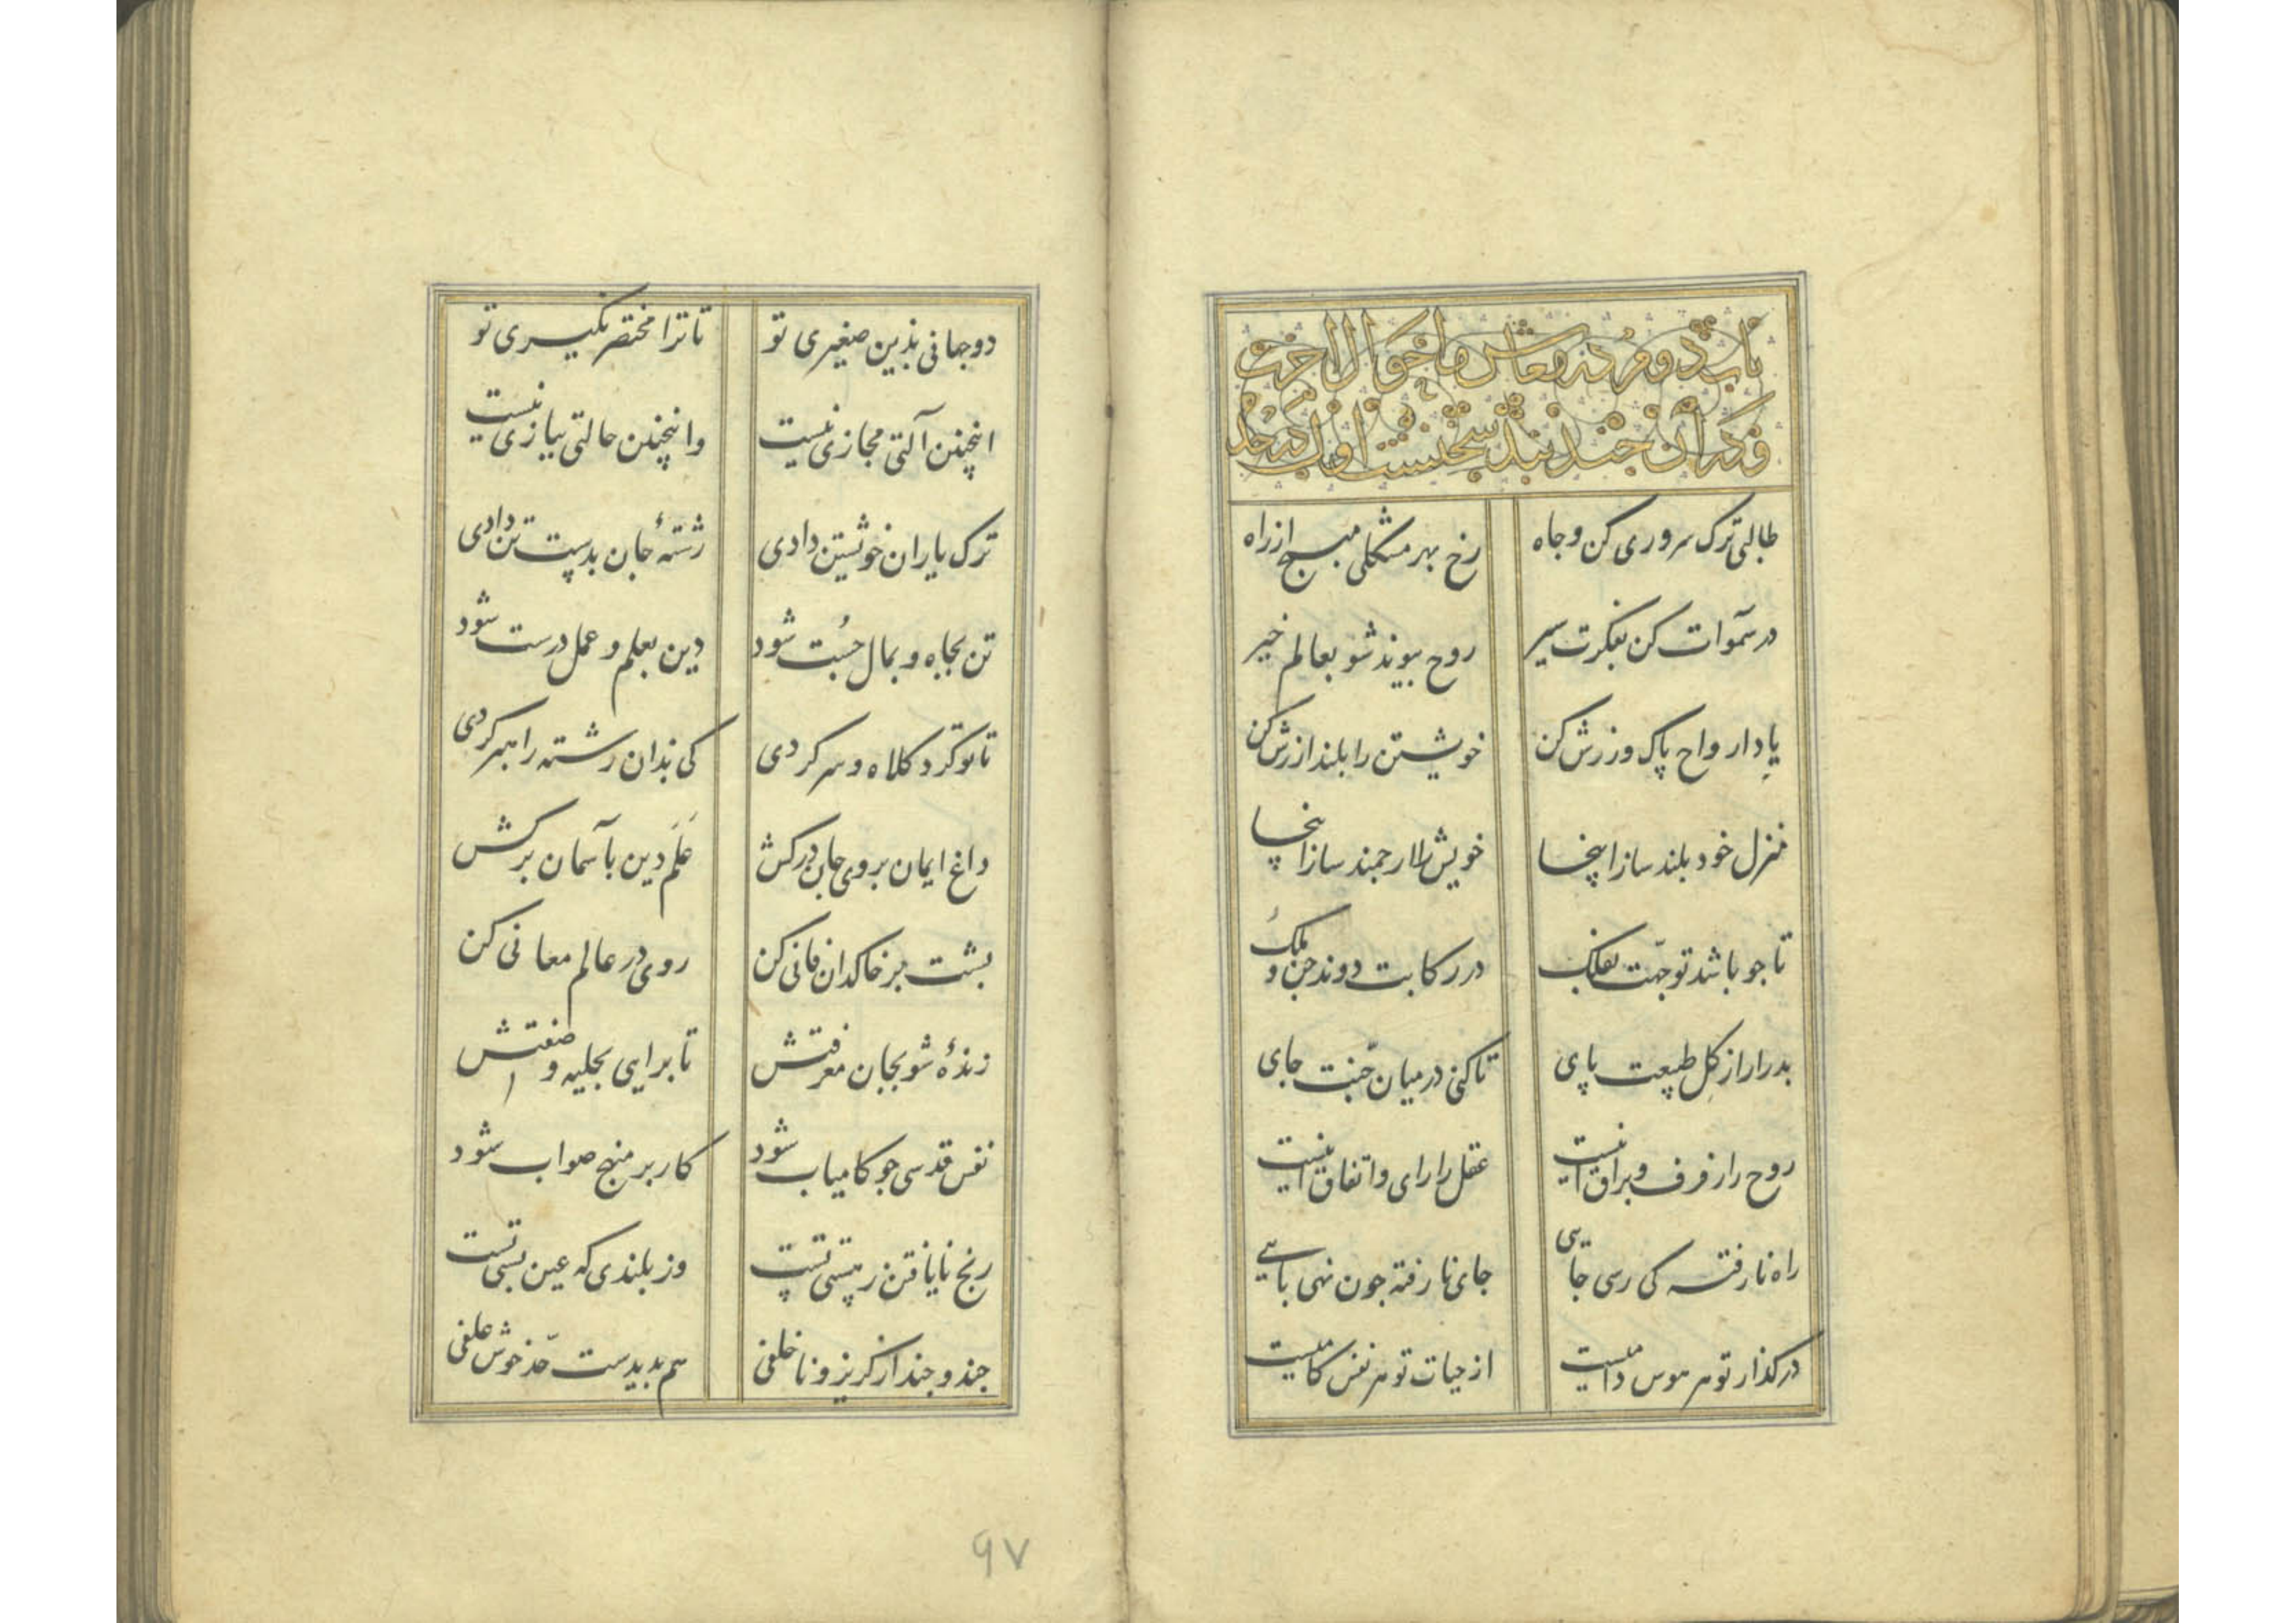 باب دوم در معاش و احوال آخرت
و در آن چند بند سخنست اول در خلا
طالبی ترک سروری کن و جاه رخ بهر مشکلی مپیچ از راه
در سموات کن بفکرت سیر روح پیوند شو بعالم خیر
یاد ارواح پاک ورزش کن خویشتن را بلند ارزش کن
منزل خود بلند ساز اینجا خویش را ارجمند ساز اینجا
تا جو باشد توجهت بفلک در رکابت دوند جن و ملک
بدرار از گل طبیعت پای تا کنی در میان جنت جای
روح را رفرف و براق اینست عقل را رای و اتفاق اینست
راه نارفته کی رسی جایی جای نارفته جون نهی پایی
در گذار تو هر هوس دامیست از حیات تو هر نفس گامیست
دو جهانی بذین صغیری تو تا ترا مختصر نگیری تو
اینچنین آلتی مجازی نیست واینچنین حالتی ببازی نیست
ترک یاران خویشتن دادی رشتهٔ جان بدست تن دادی
تن بجاه و بمال جست شود دین بعلم و عمل درست شود
تا تو کرد کلاه و سر کردی کی بذان رشته راهبر کردی
داغ ایمان بروی جان درکش علم دین بآسمان برکش
پشت بر خاکدان فانی کن روی در عالم معانی کن
زندهٔ شو بجان معرفتش تا برایی بحلیه و صفتش
نفس قدسی جو کامیاب شود کار بر منهج صواب شود
رنج نایافتن ز پستی تست وز بلندی که عین پستی تست
جند و جند از کریز و ناخلفی هم بدیدست حد خوش علفی
۹۷